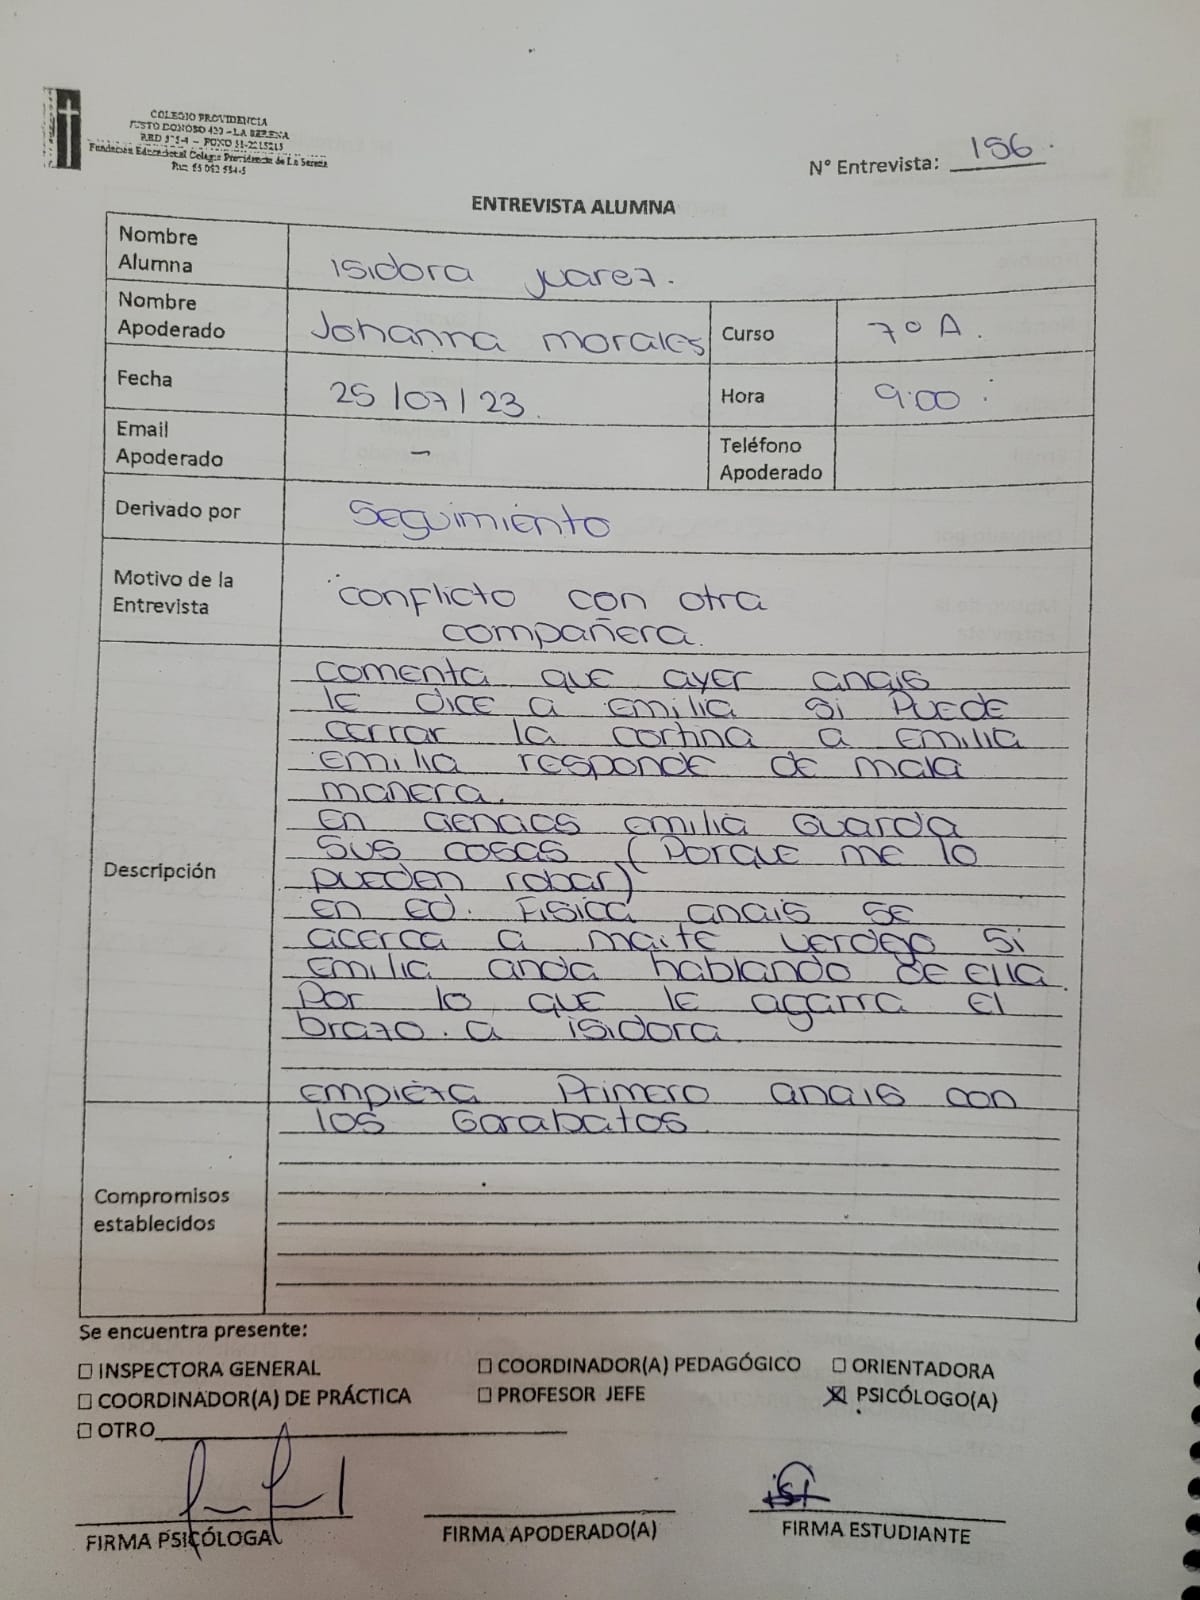 COLEGIO PROVIDENCIA
JUSTO DONOSO 420 - LA SERENA
Fundación Educacional Colegio Providencia de La Serena
N° Entrevista: 156.
ENTREVISTA ALUMNA
Nombre
Alumna
isidora juarez.
Nombre
Apoderado
Johanna morales
Curso
7° A.
Fecha
25/07/23.
Hora
9:00
Email
Apoderado
-
Teléfono
Apoderado
Derivado por
Seguimiento
Motivo de la
Entrevista
conflicto con otra
compañera.
Descripción
comenta que ayer anais
le dice a Emilia si puede
cerrar la cortina a Emilia
Emilia responde de mala
manera.
En Emilia Guarda
sus cosas (Porque me lo
pueden robar)
En Ed. Fisica anais se
acerca a maite verdego si
Emilia anda hablando de ella.
Por lo que le agarra el
brazo. a isidora
Empieza Primero anais con
los Garabatos.
Compromisos
establecidos
Se encuentra presente:
☐ INSPECTORA GENERAL ☐ COORDINADOR(A) PEDAGÓGICO ☐ ORIENTADORA
☐ COORDINADOR(A) DE PRÁCTICA ☐ PROFESOR JEFE ☒ PSICÓLOGO(A)
☐ OTRO
isi
FIRMA PSICÓLOGA FIRMA APODERADO(A) FIRMA ESTUDIANTE